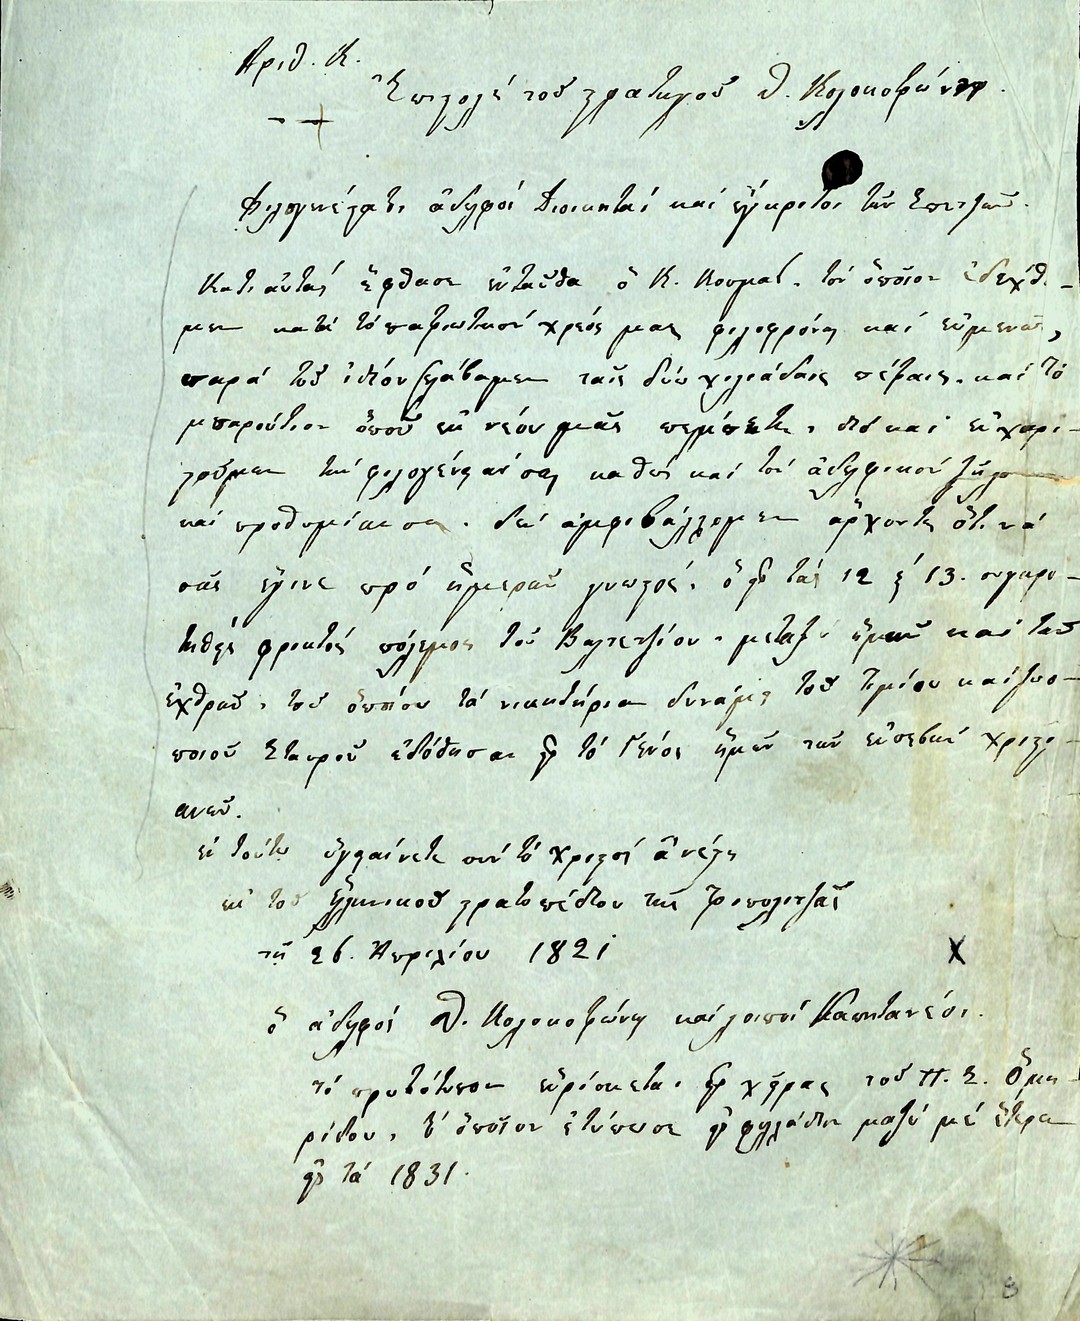 Ἀριθ. Κ.
Ἐπιστολὲ τοῦ στρατηγοῦ Θ. Κολοκοτρώνη.
Φιλογενέστατοι ἀδελφοί Διοικηταί καί ἔγκριτοι τῶν Σπετζῶν.
Κατ' αὐτάς ἔφθασε ἐνταῦθα ὁ Κ. Κοσμᾶς. τόν ὁποῖον ἐδέχθη-
μεν κατά τό πατριωτικόν χρέος μας φιλοφρόνως καί εὐμενῶς,
παρά τοῦ ἰδίου ἐλάβαμεν ταῖς δύω χιλιάδαις πέτζαις. καί τό
μπαρούτιον ὁποῦ ἐκ νέου μᾶς πεμπετε. διό καί εὐχαρι-
στοῦμεν τήν φιλογένειάν σας καθώς καί τόν ἀδελφικόν ζῆλον
καί προθυμίαν σας. δέν ἀμφιβάλλομεν ἄρχοντες ὅτι νά
σᾶς ἔγινε πρό ἡμερῶν γνωστός, ὁ εἰς τάς 12 ἕ 13. συγκρο-
τηθείς φρικτός πόλεμος τοῦ Βαλτετζίου. μεταξύ ἡμῶν καί τῶν
ἐχθρῶν. τοῦ ὁποίου τά νικητήρια δυνάμει τοῦ Τιμίου καί ζωο-
ποιοῦ Σταυροῦ ἐδόθησαν εἰς τό Γένος ἡμῶν τῶν εὐσεβῶν χριστι-
ανῶν.
ἐν τούτω ὑγιαίνετε σύν τό χριστόσ ἀνέστη
ἐκ τοῦ ἑλληνικοῦ στρατοπέδου τῆς Τριπολιτζᾶς
τῇ 26. Ἀπριλίου 1821
Χ
ὁ ἀδελφός Θ. Κολοκοτρώνης καί λοιποί Καπιτανέοι.
τό πρωτότυπον εὑρίσκεται εἰς χεῖρας τοῦ Π. Σ. Ὀμη-
ρίδου, τό ὁποῖον ἐτύπωσε εἰς φυλλάδιον μαζύ μέ ἕτερα
εἰς τά 1831.
8